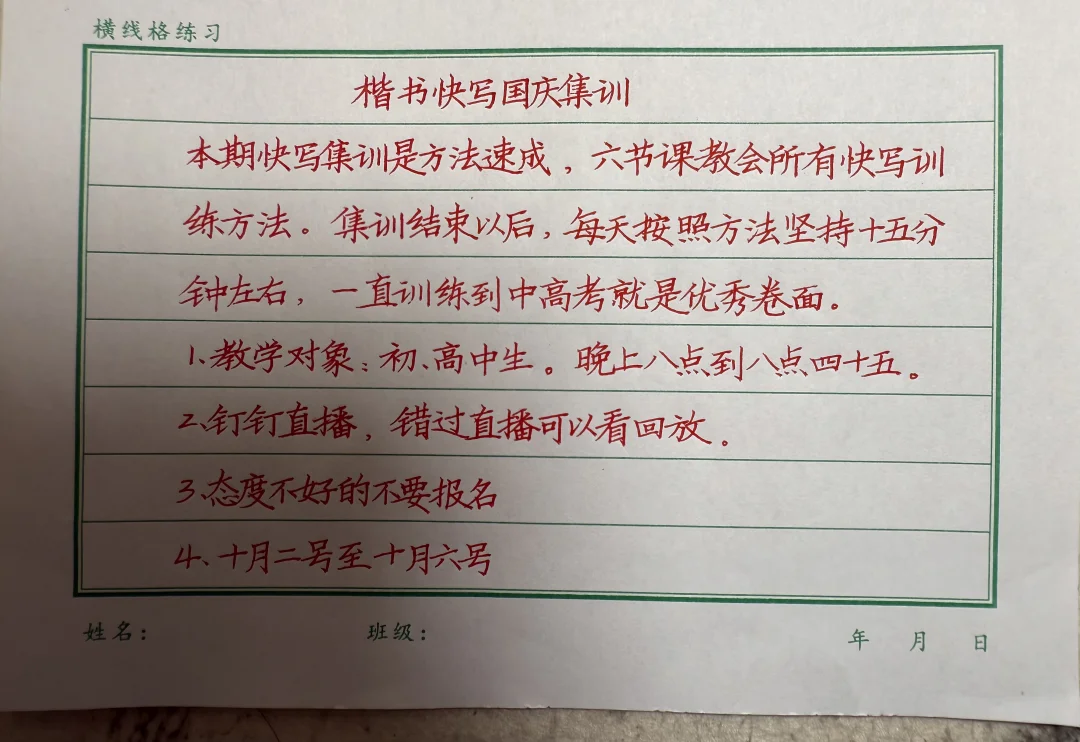 横线格练习
楷书快写国庆集训
本期快写集训是方法速成，六节课教会所有快写训
练方法。集训结束以后，每天按照方法坚持十五分
钟左右，一直训练到中高考就是优秀卷面。
1、教学对象：初、高中生。晚上八点到八点四十五。
2、钉钉直播，错过直播可以看回放。
3、态度不好的不要报名
4、十月二号至十月六号
姓名： 班级： 年 月 日